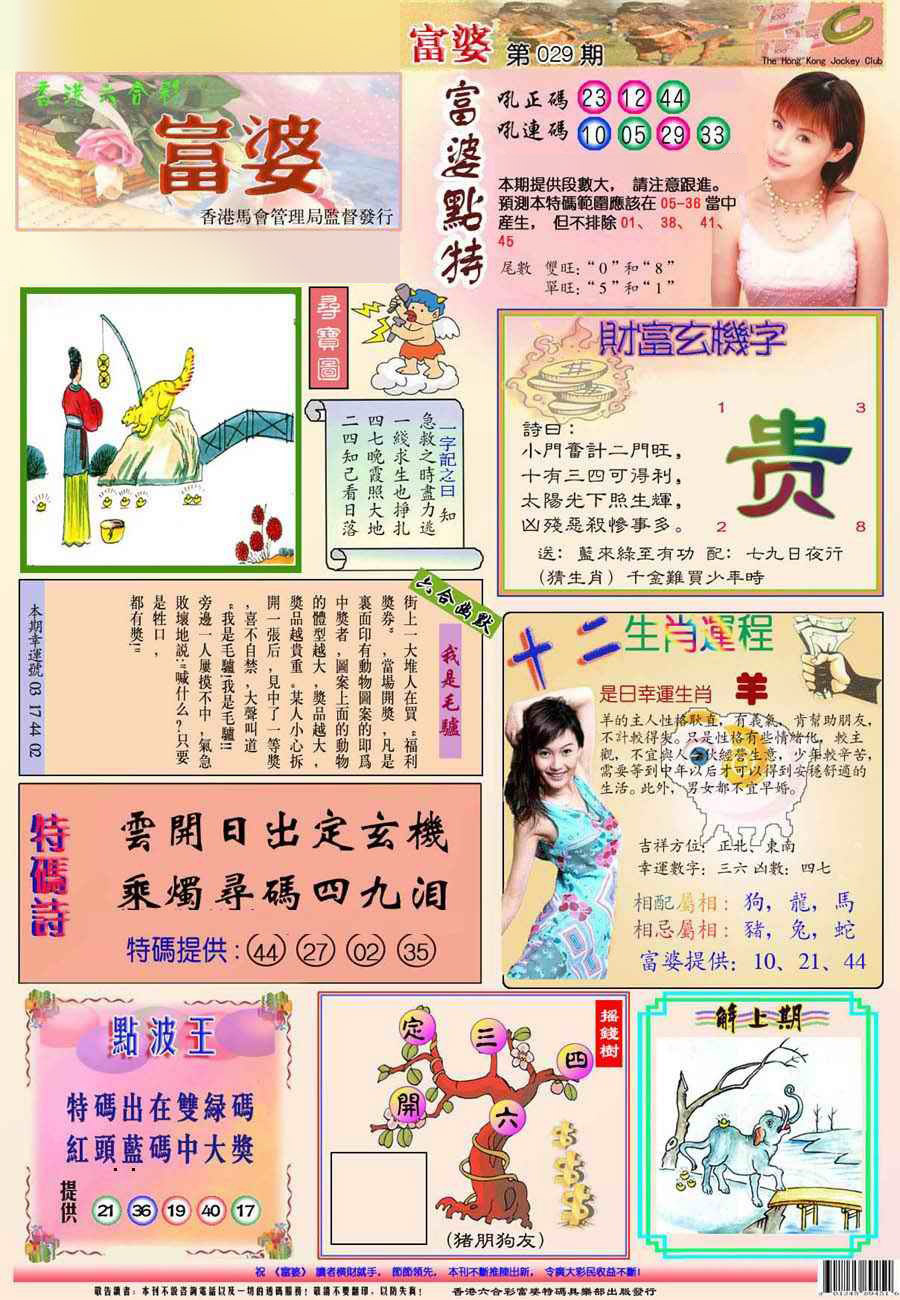 富婆 第 029 期
The Hong Kong Jockey Club
香港六合彩
富婆
香港馬會管理局監督發行
富婆點特
吼正碼 23 12 44
吼連碼 10 05 29 33
本期提供段數大， 請注意跟進。
預測本特碼範圍應該在 05-36 當中
産生， 但不排除 01、 38、 41、
45
尾數 雙旺:“0”和“8”
單旺:“5”和“1”
尋寶圖
一字記之曰 知
急救之時盡力逃
一綫求生也掙扎
四七晚霞照大地
二四知己看日落
財富玄機字
詩曰:
小門奮計二門旺，
十有三四可得利，
太陽光下照生輝，
凶殘惡殺慘事多。
1 3
贵
2 8
送: 藍來綠至有功 配: 七九日夜行
(猜生肖) 千金難買少年時
六合幽默
我是毛驢
街上一大堆人在買“福利
獎券”，當場開獎，凡是
裏面印有動物圖案的即爲
中獎者，圖案上面的動物
的體型越大，獎品越大，
獎品越貴重。某人小心拆
開一張后，見中了一等獎
，喜不自禁，大聲叫道
:“我是毛驢!我是毛驢!!!
旁邊一人屢摸不中，氣急
敗壞地説:“喊什么?只要
是牲口，
都有獎!”
本期幸運號 03 17 44 02
十二生肖運程
是日幸運生肖 羊
羊的主人性格耿直，有義氣，肯幫助朋友，
不計較得失。只是性格有些情緒化，較主
觀，不宜與人合伙經營生意，少年較辛苦，
需要等到中年以后才可以得到安穩舒適的
生活。此外，男女都不宜早婚。
吉祥方位: 正北，東南
幸運數字: 三六 凶數: 四七
相配屬相: 狗，龍，馬
相忌屬相: 豬，兔，蛇
富婆提供: 10、21、44
特碼詩
雲開日出定玄機
乘燭尋碼四九泪
特碼提供: 44 27 02 35
點波王
特碼出在雙緑碼
紅頭藍碼中大獎
提供 21 36 19 40 17
摇錢樹
定 三 四
開 六
(猪朋狗友)
解上期
祝 《富婆》 讀者横財就手， 節節領先， 本刊不斷推陳出新， 令廣大彩民收益不斷!
敬告讀者: 本刊不設咨詢電話以及一切的透碼服務! 敬請不要翻印，以防失真!
香港六合彩富婆特碼具樂部出版發行